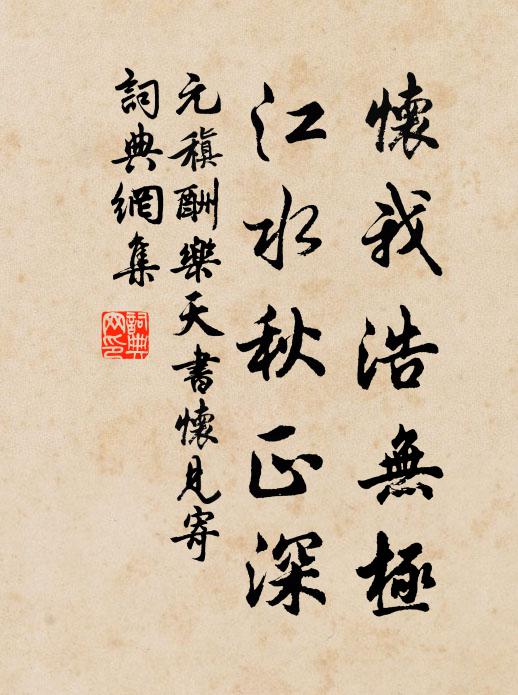 懷我浩無極
江水秋正深
元稹酬樂天書懷見寄
詞典網集
詞典網印